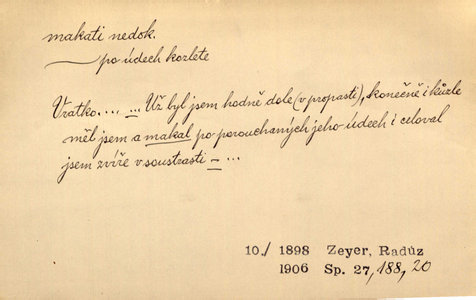 makati nedok.
— po údech kozlete
Vratko.... — ... Už byl jsem hodně dole (v propasti), konečně i kůzle
měl jsem a makal po porouchaných jeho údech i celoval
jsem zvíře v soustrasti — ...
10./ 1898 Zeyer, Radúz
1906 Sp. 27, 188, 20